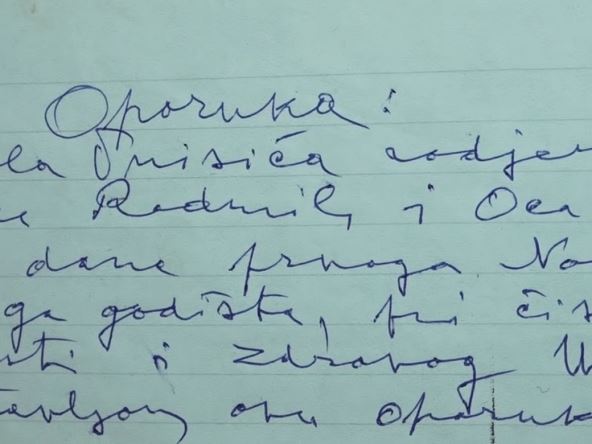 Oporuka:
la rodjen
Radmil, i Oca
dane prvoga No
ga godišta, pri čis
sti i zdravog U
tavljam ovu oporuk